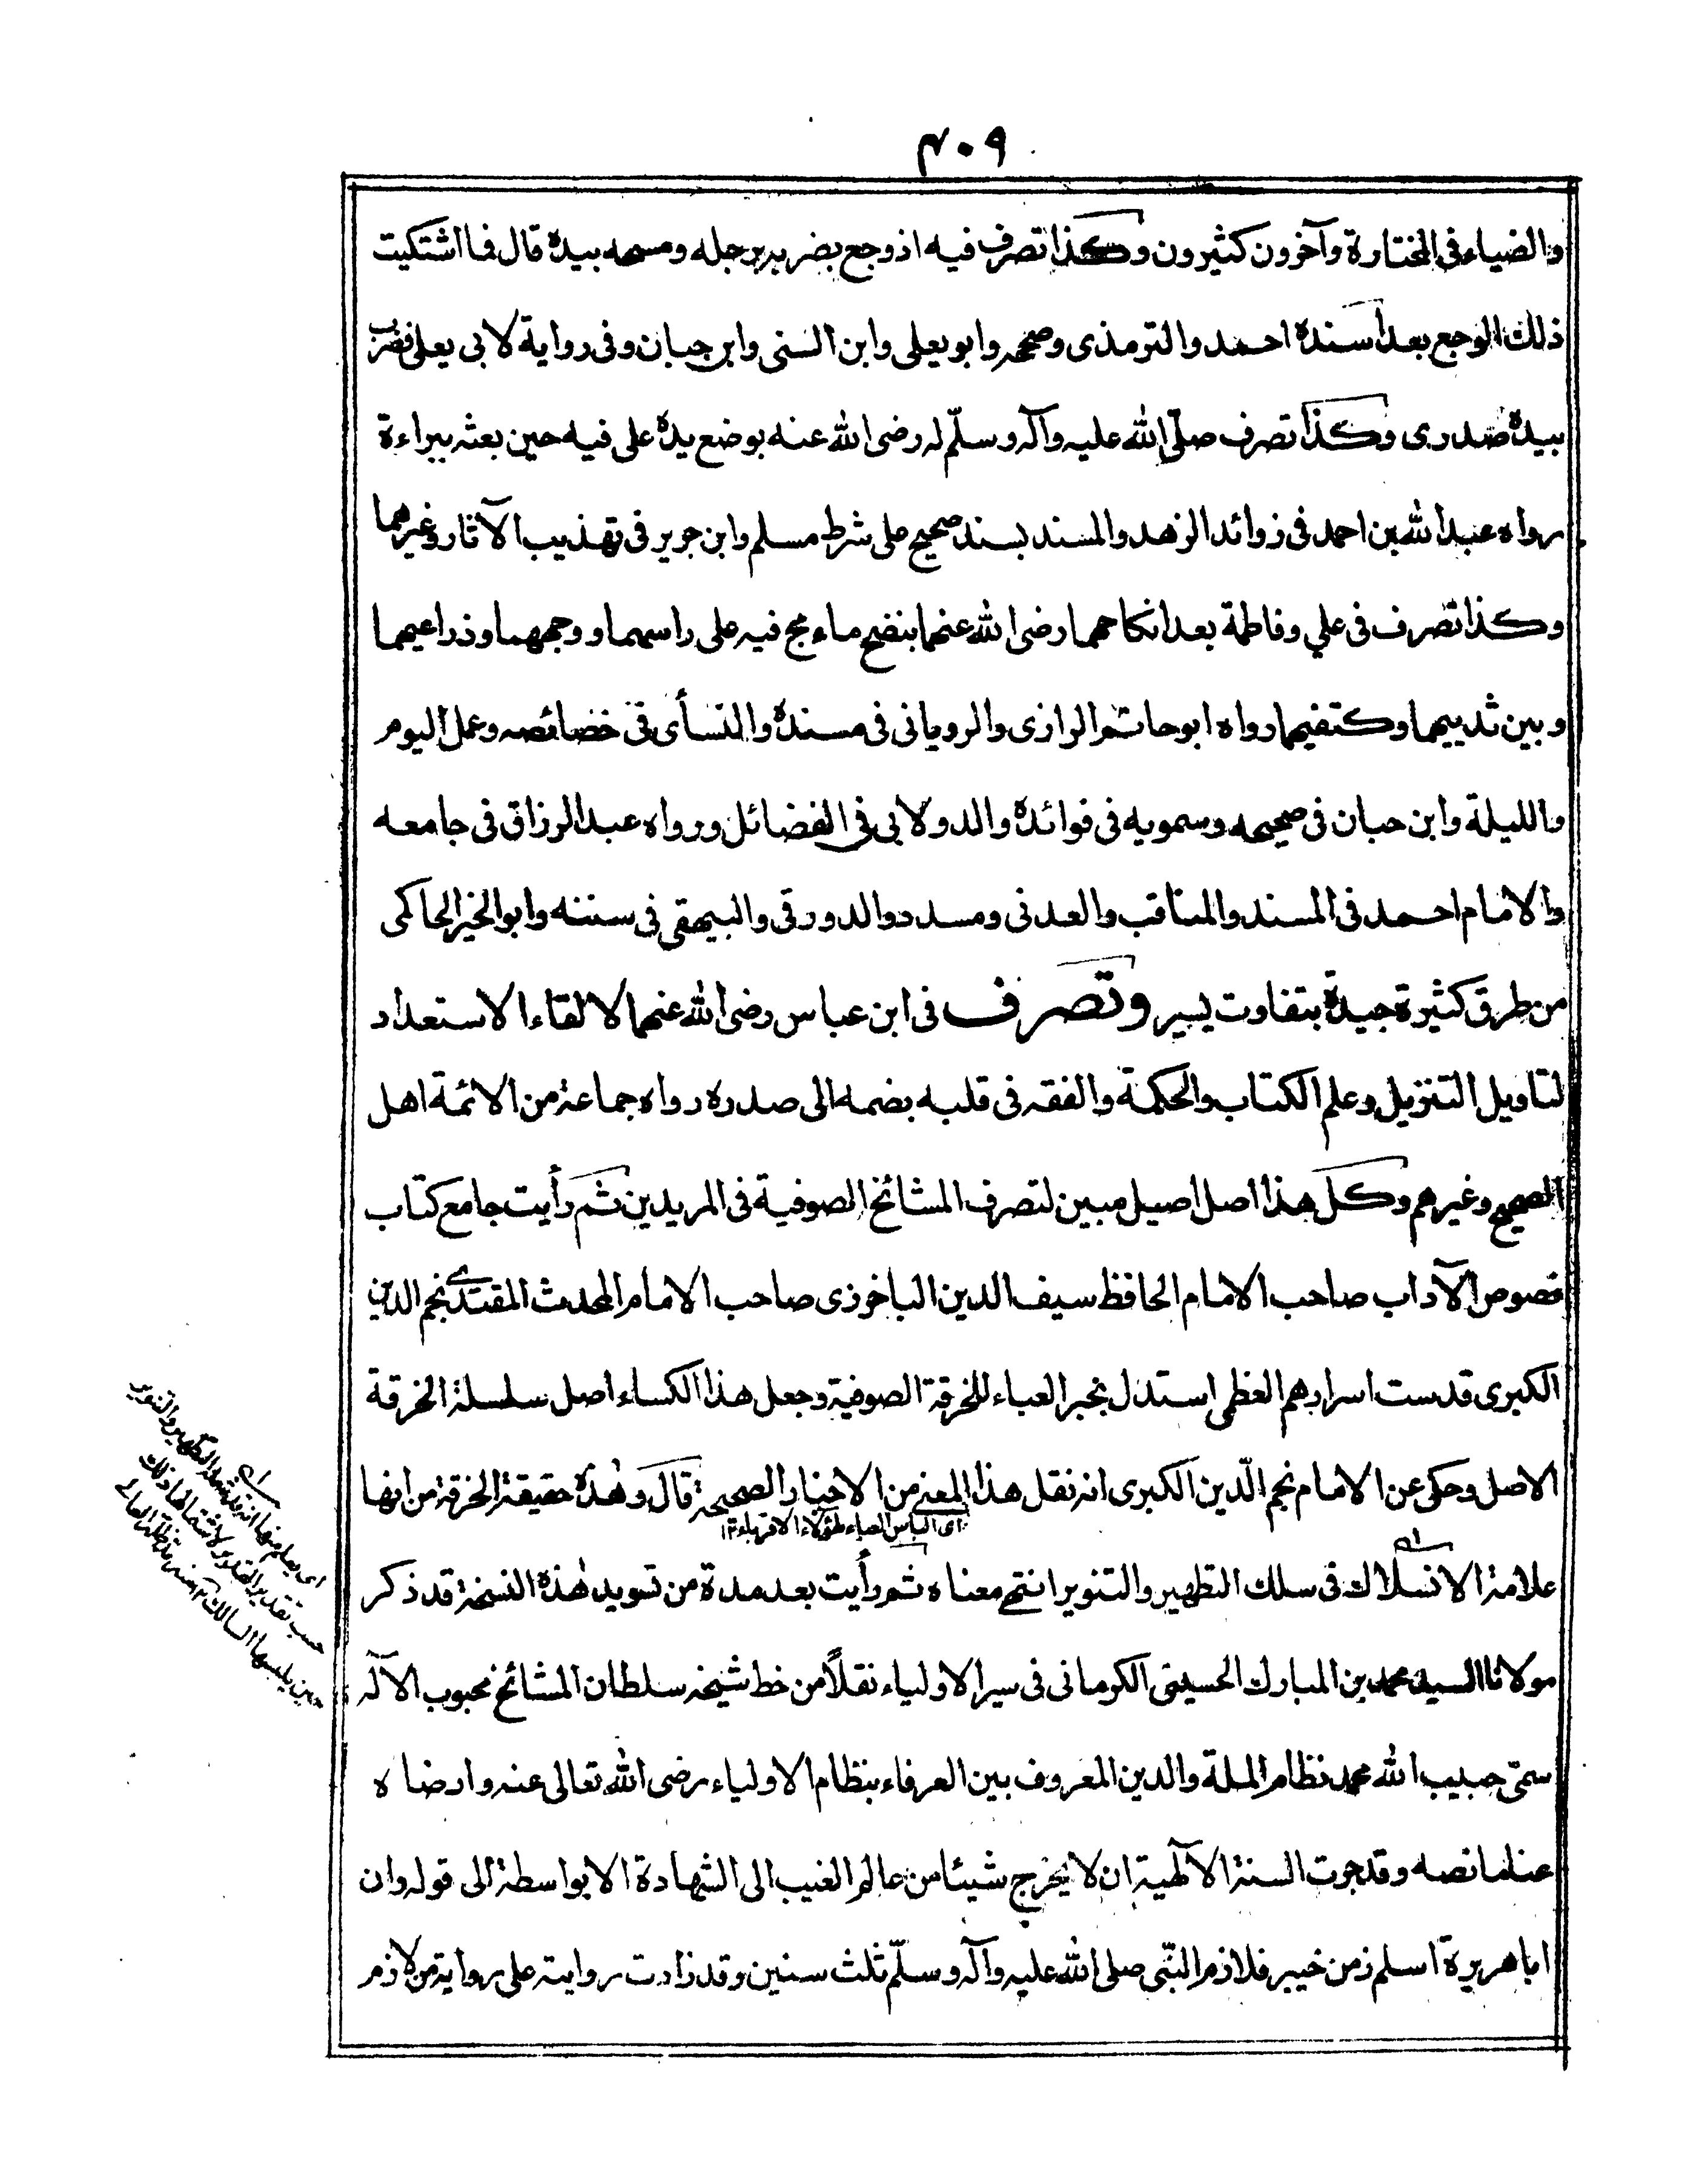 ۴۰۹
والضياء فى المختارة وآخرون كثيرون وكذا تصرف فيه اذ وجع بضربه برجله ومسحه بيده قال فما اشتكيت
ذلك الوجع بعد اسنده احمد والترمذى وصححه وابو يعلى وابن السنى وابن حبان وفى رواية لابى يعلى فضرب
بيده صدرى وكذا تصرف صلى الله عليه وآله وسلّم له رضى الله عنه بوضع يده على فيه حين بعثه ببراءة
رواه عبد الله بن احمد فى زوائد الزهد والمسند بسند صحيح على شرط مسلم وابن جرير فى تهذيب الآثار وغيرهما
وكذا تصرف فى علي وفاطمة بعد انكاحهما رضى الله عنهما بنضح ماء مج فيه على راسهما ووجههما وذراعيهما
وبين ثدييهما وكتفيهما رواه ابو حاتم الرازى والرويانى فى مسنده والنسأى فى خصائصه وعمل اليوم
والليلة وابن حبان فى صحيحه وسمويه فى فوائده والدولابى فى الفضائل ورواه عبد الرزاق فى جامعه
والامام احمد فى المسند والمناقب والعدنى ومسدد والدورقى والبيهقى فى سننه وابو الخير الحاكمى
من طرق كثيرة جيدة بتفاوت يسير وتصرف فى ابن عباس رضى الله عنهما لالقاء الاستعداد
لتاويل التنزيل وعلم الكتاب والحكمة والفقه فى قلبه بضمه الى صدره رواه جماعة من الائمة اهل
الصحيح وغيرهم وكل هذا اصل اصيل مبين لتصرف المشائخ الصوفية فى المريدين ثم رأيت جامع كتاب
فصوص الآداب صاحب الامام الحافظ سيف الدين الباخرزى صاحب الامام المحدث المقتدى نجم الدين
الكبرى قدست اسرارهم العظمى استدل بخبر العباء للخرقة الصوفية وجعل هذا الكساء اصل سلسلة الخرقة
الاصل وحكى عن الامام نجم الّدين الكبرى انه نقل هذا المعنى من الاخبار الصحيحة قال وهذه حقيقة الخرقة من انها
اى الباس العباء لهؤلاء الاقرباء ۱۲
علامة الانسلاك فى سلك التطهير والتنوير انتهى معناه ثم رأيت بعد مدة من تسويد هذه النسخة قد ذكر
مولانا السيد محمد بن المبارك الحسينى الكرمانى فى سير الاولياء نقلاً من خط شيخه سلطان المشائخ محبوب الآله
سمىّ حبيب الله محمد نظام الملة والدين المعروف بين العرفاء بنظام الاولياء رضى الله تعالى عنه وارضاه
عنا ما نصه وقد جرت السنة الآلهية ان لا يخرج شيئا من عالم الغيب الى الشهادة الا بواسطة الى قوله وان
ابا هريرة اسلم زمن خيبر فلازم النّبى صلى الله عليه وآله وسلّم ثلث سنين وقد زادت روايته على رواية من لازم
والتنوير
حسب تقدير
حين يلبسها السالك